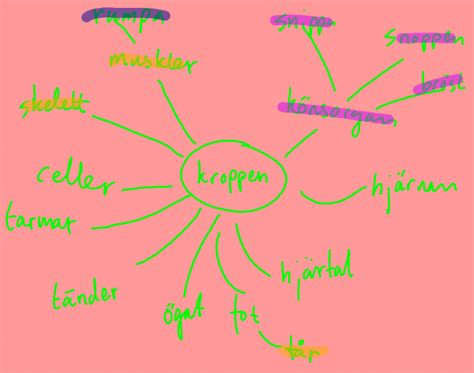 rumpa
snippa
snoppen
muskler
bröst
skelett
könsorgan
celler
kroppen
hjärnan
tarmar
hjärtal
tänder
ögat
fot
tår